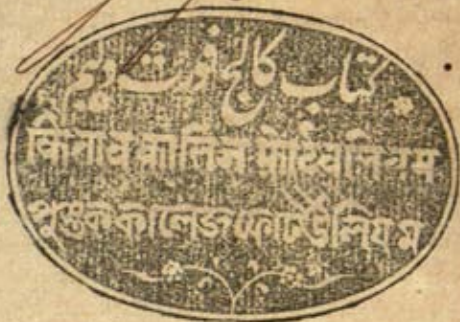 کتاب کالج فورٹ ولیم
किताब कालिज फोर्टविलियम
পুস্তক কালেজ ফোর্ট উলিয়ম